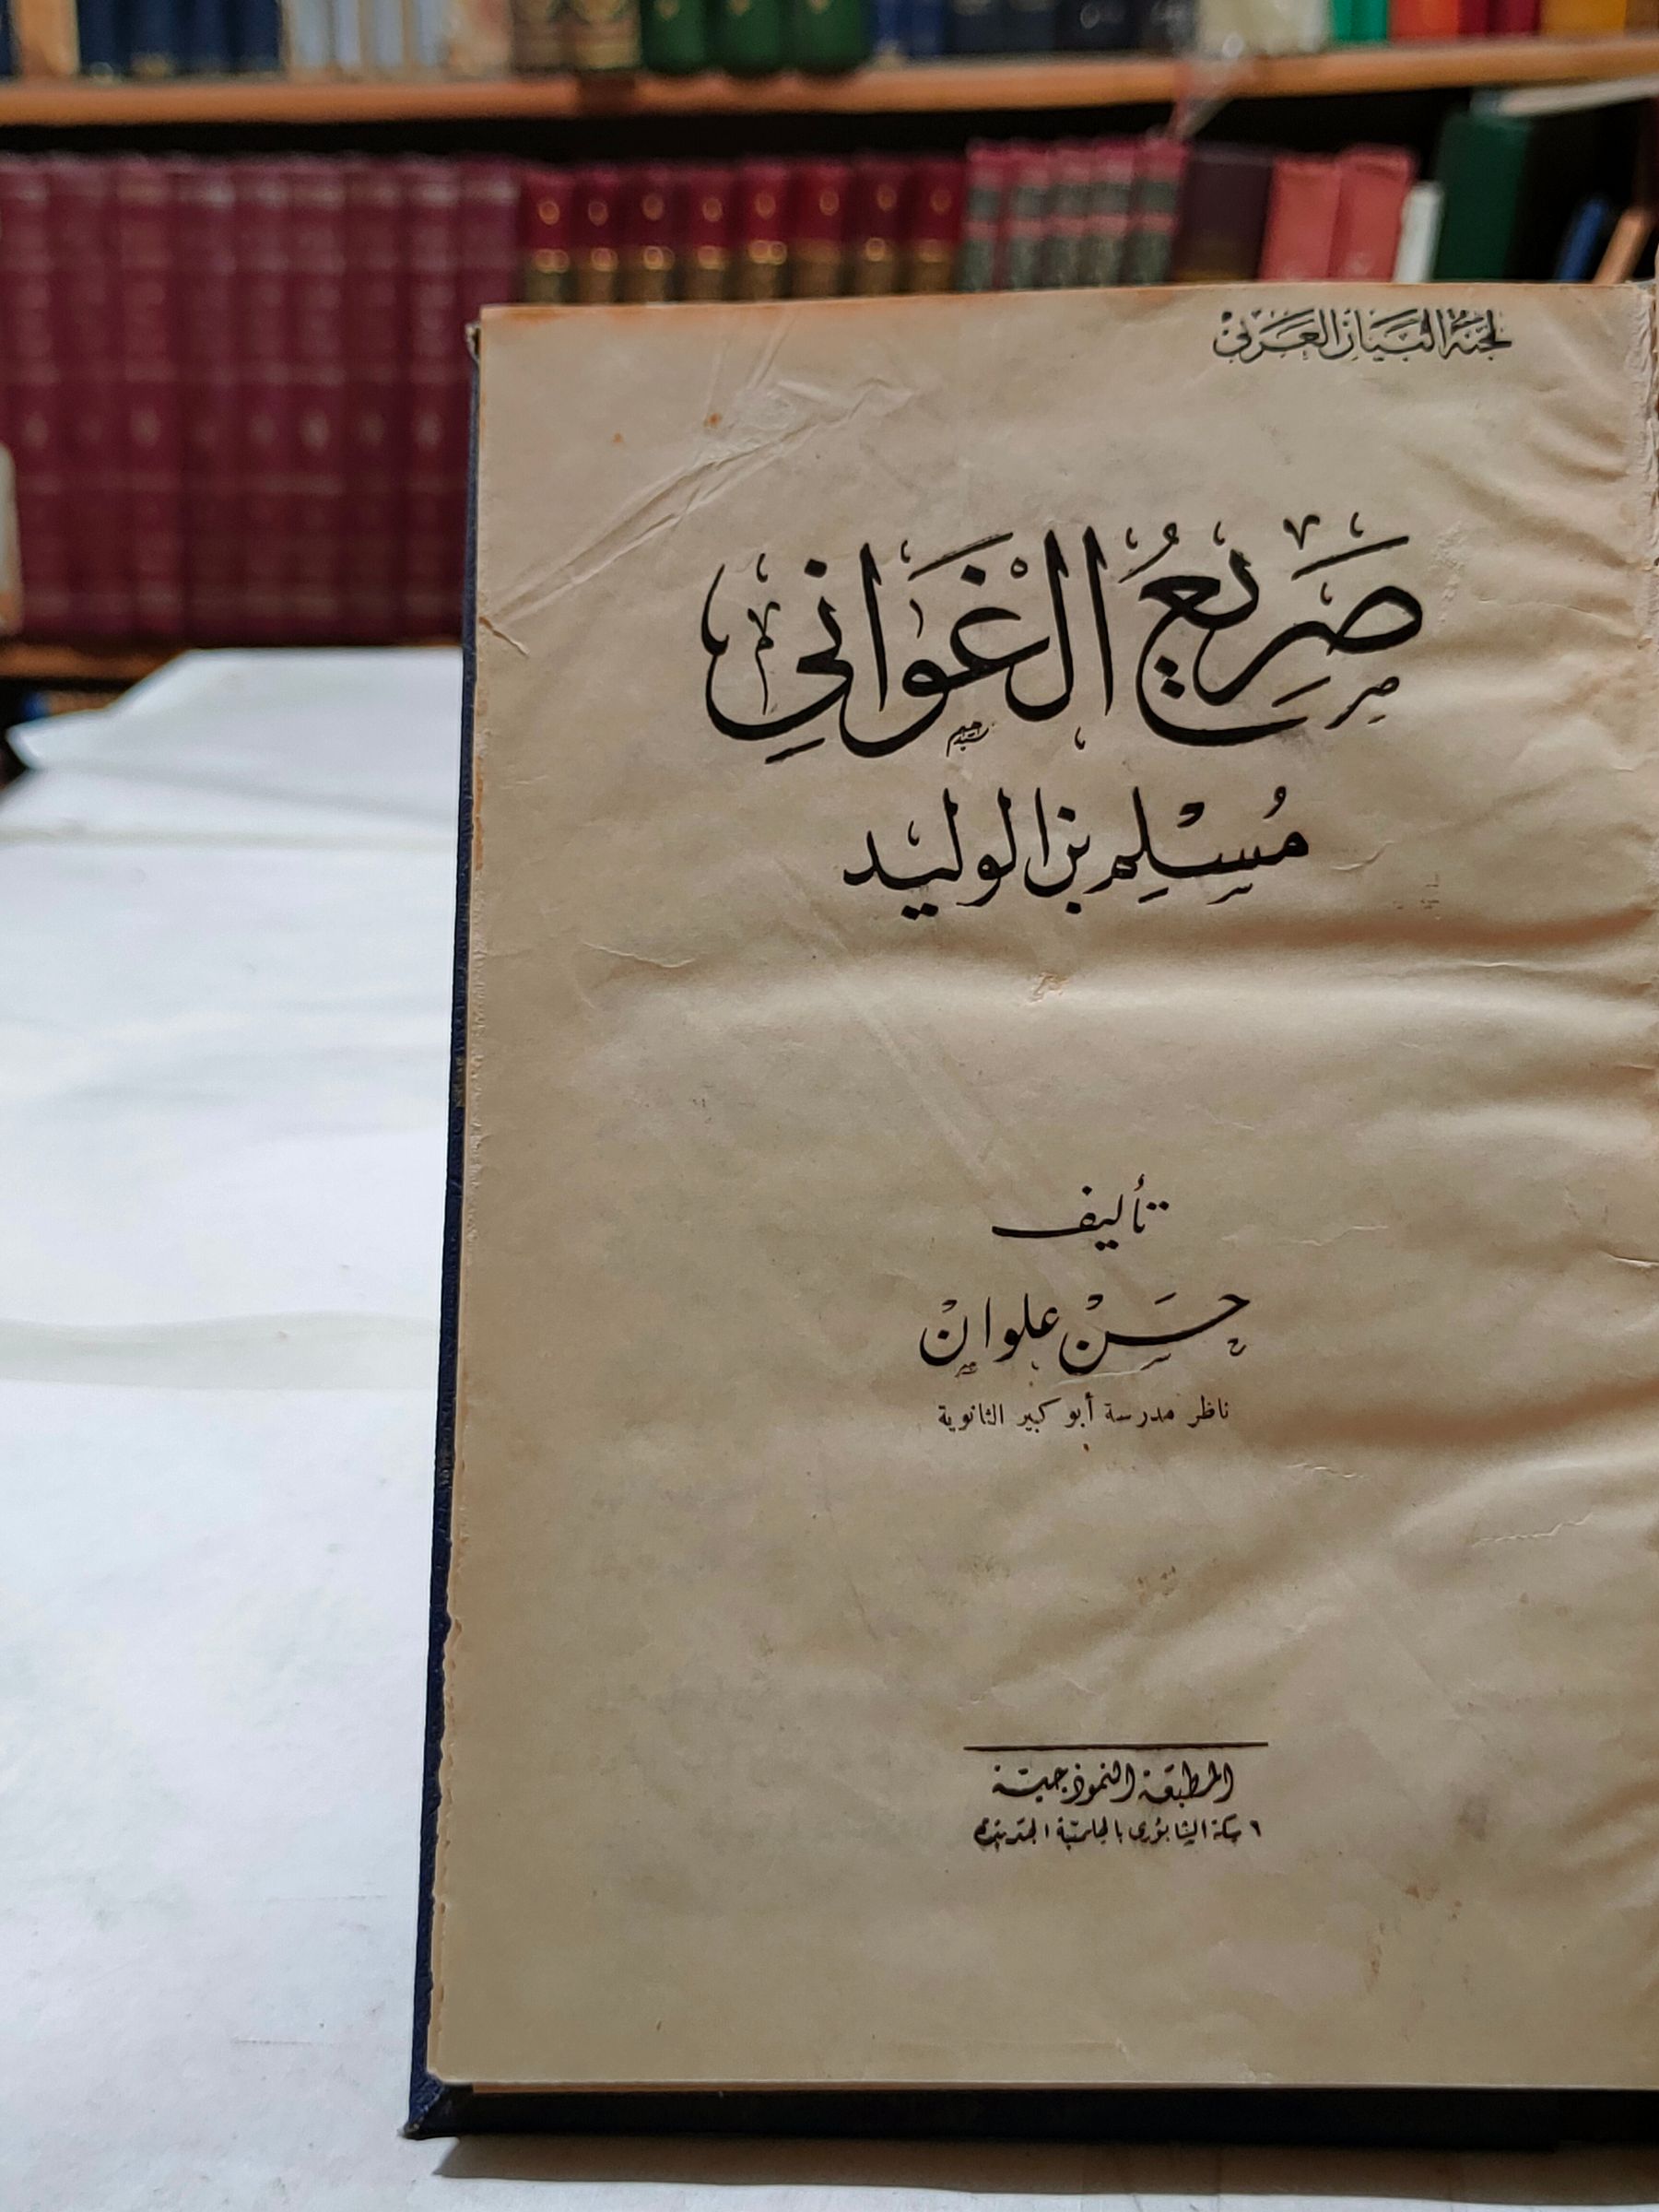 لجنة البيان العربي
صَرِيعُ الْغَوَانِي
مُسْلِم بن الوليد
تأليف
حَسَنْ علوانْ
ناظر مدرسة أبو كبير الثانوية
المطبعة النموذجية
٦ سكة الشابوري بالحلمية الجديدة